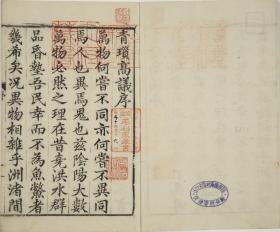 青瑣高議序
萬物何嘗不同亦何嘗不異同
焉人也異焉鬼也兹陰陽大數
萬物必然之理在昔堯洪水羣
品昏墊吾民幸而不為魚鱉者
幾希矣況異物相雜乎洲渚間